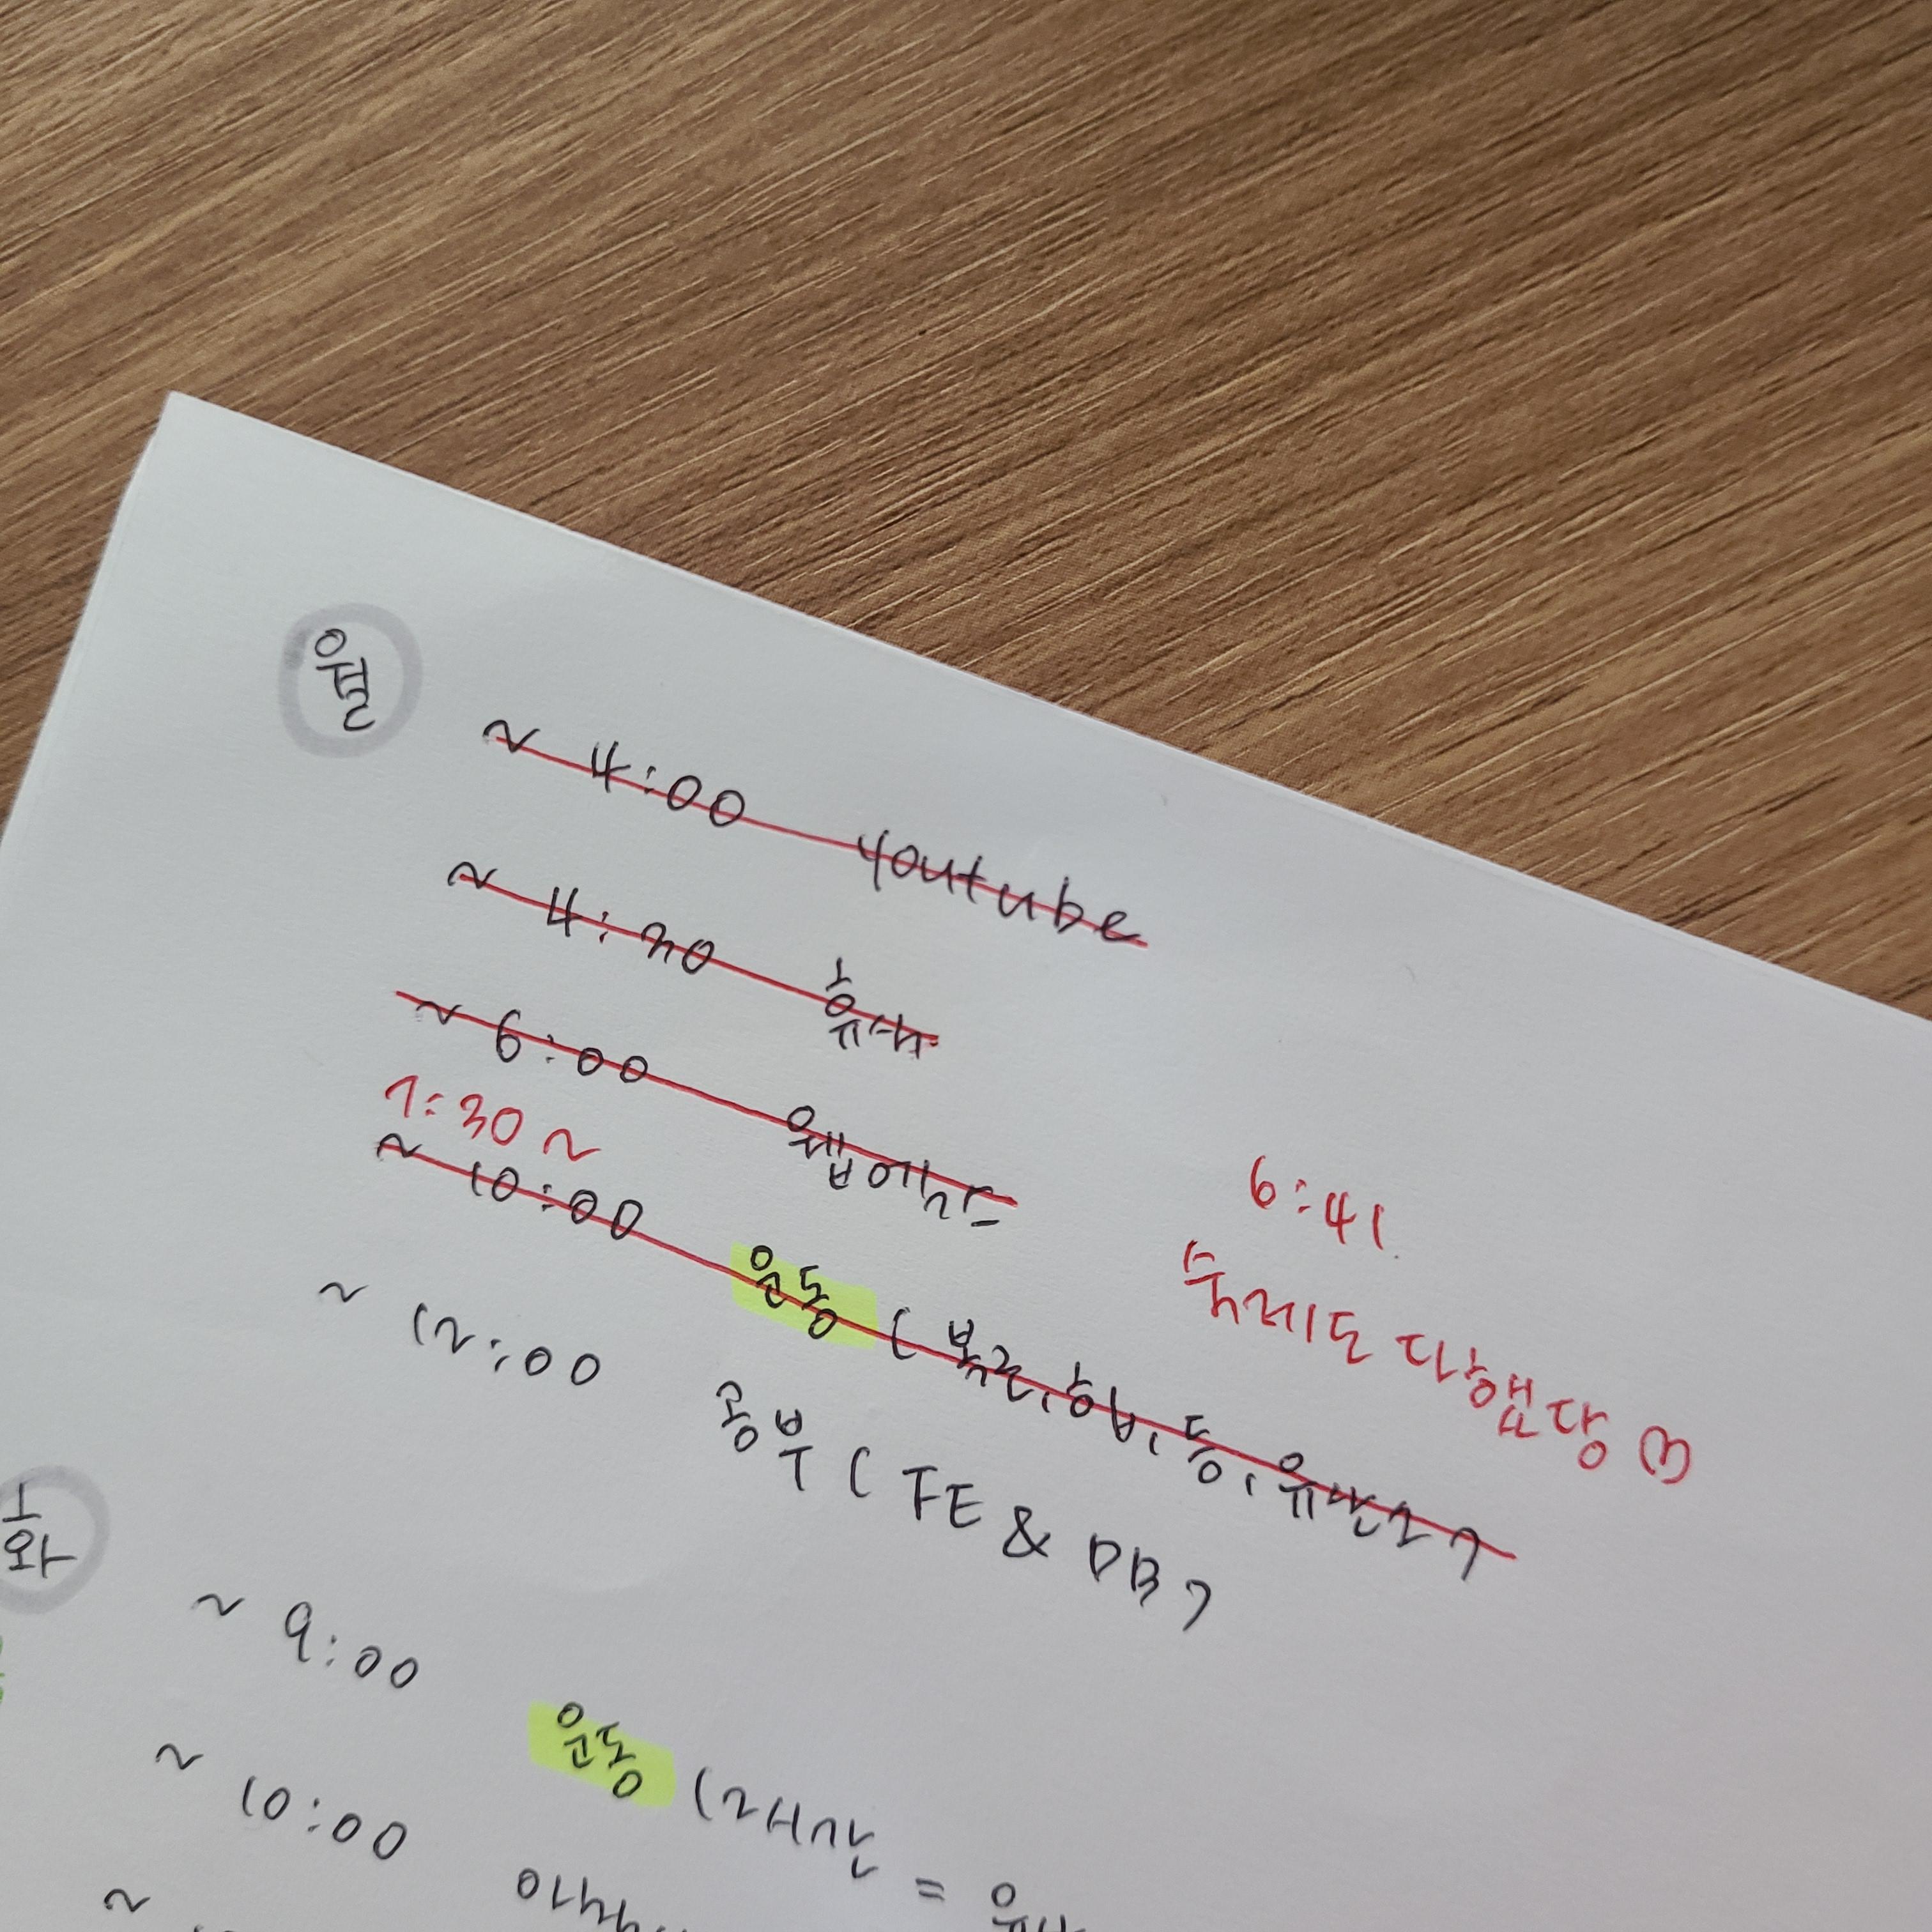 월
~ 4:00 youtube
~ 4:30 휴식
~ 6:00 웹엑스
7:30 ~
6:41
숙제도 다했당
~ 10:00 운동 (복근, 힙, 등, 유산소)
~ 12:00 공부 (FE & DB)
화
~ 9:00 운동 (2시간 =
~ 10:00
~